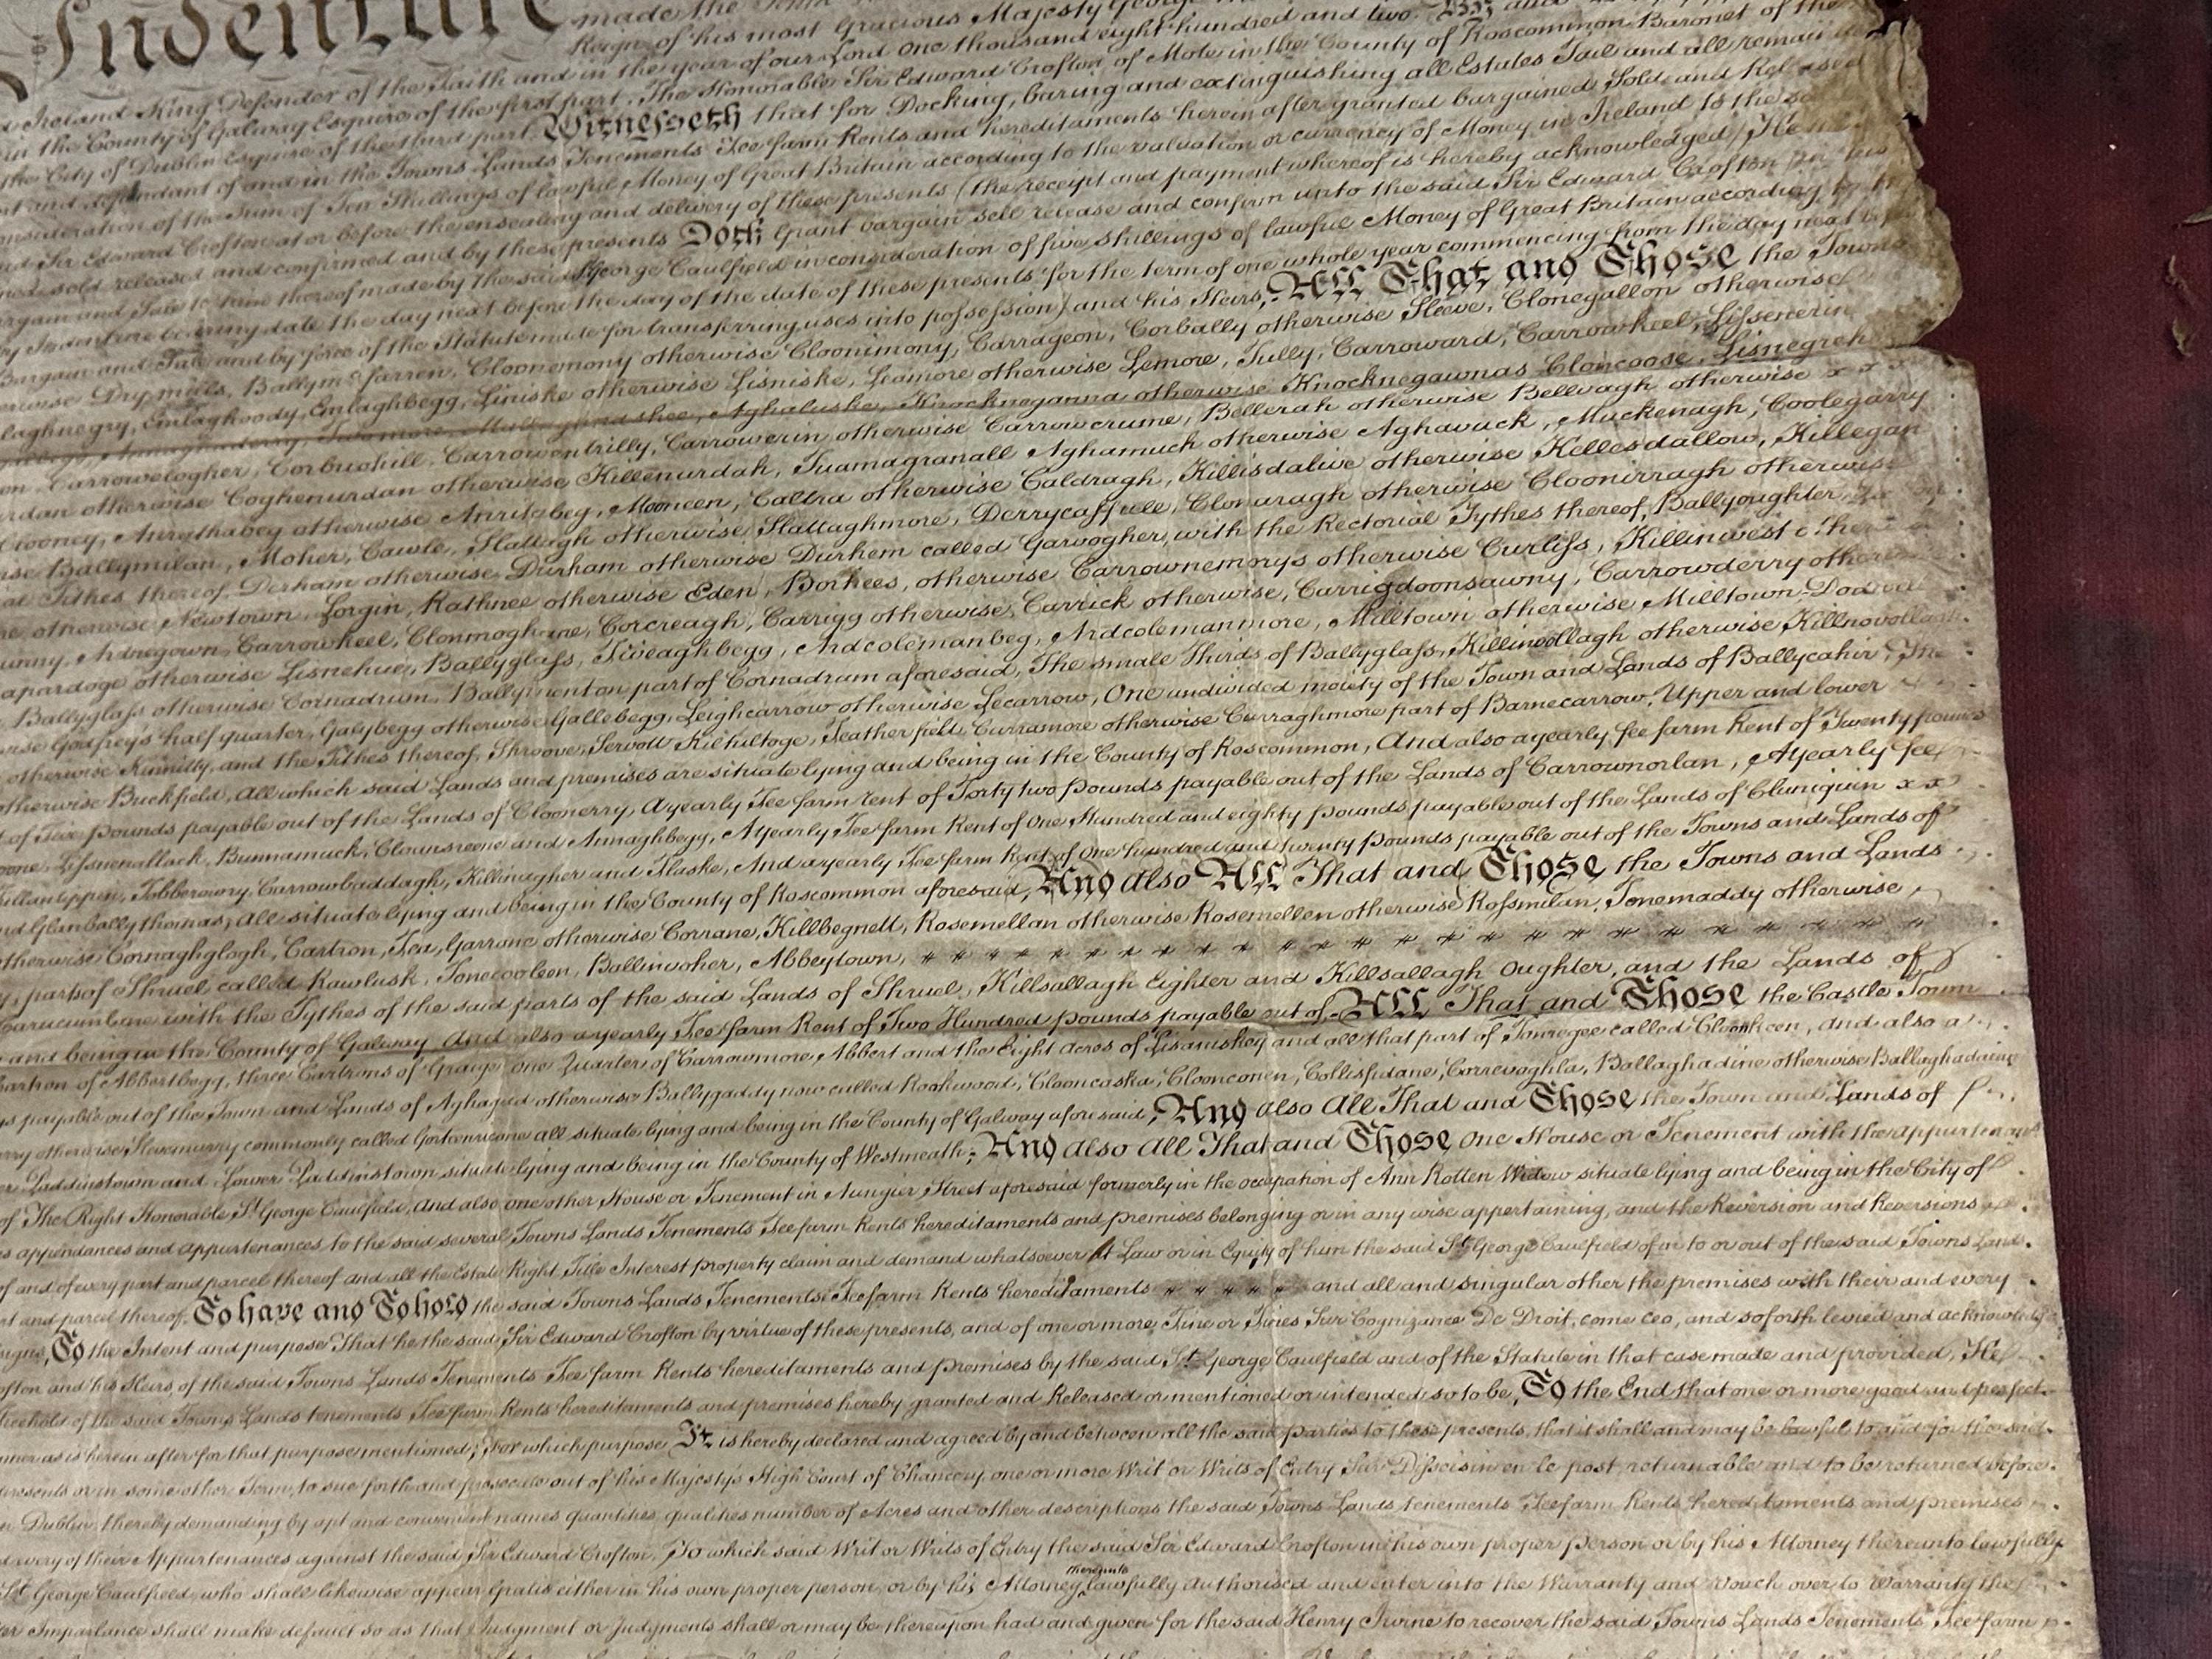 Indenture made the
Reign of his most Gracious Majesty George
Ireland King Defender of the Faith and in the year of our Lord One thousand eight hundred and two.
in the County of Galway Esquire of the first part, The Honorable Sir Edward Crofton of Mote in the County of Roscommon Baronet of the
the City of Dublin Esquire of the third part. Witnesseth that for Docking, baring and extinguishing all Estates Tail and all remain
and defendant of and in the Towns Lands Tenements Fee farm Rents and hereditaments herein after granted bargained Sold and Released
consideration of the Sum of Ten Shillings of lawful Money of Great Britain according to the valuation or currency of Money in Ireland to the
Sir Edward Crofton at or before the ensealing and delivery of these presents (the receipt and payment whereof is hereby acknowledged) He
sold released and confirmed and by these presents Doth Grant bargain sell release and confirm unto the said Sir Edward Crofton
Bargain and Sale to him thereof made by the said St. George Caulfield in consideration of five shillings of lawful Money of Great Britain according
by Indenture bearing date the day next before the day of the date of these presents for the term of one whole year commencing from the day next
Bargain and Sale and by force of the Statute made for transferring uses into possession) and his Heirs, All That and Those the Towns
Drymills, Ballymcfarren, Cloonemony otherwise Cloonimony, Carrageon, Corbally otherwise Sleeve, Clonegallon otherwise
laghnegry, Emlaghoody, Emlaghbegg, Liniske otherwise Lisniske, Leamore otherwise Lemore, Tully, Carroward, Carrowkeel, Lissenerin
Aghaluske, Knockneganna otherwise Knocknegawnas Cloncoose, Lisnegreh
Carrowelogher, Corbuohill, Carrowentrilly, Carrowerin otherwise Carrowcrume, Bellerah otherwise Bellvagh otherwise x x x
otherwise Coghenurdan otherwise Killenurdah, Tuamagranall Aghamuck otherwise Aghavuck, Muckenagh, Coolegarry
Clooney, Anrythabeg otherwise Anritabeg, Mooneen, Caltra otherwise Caldragh, Killisdalive otherwise Killesdallow, Killegan
Ballymilan, Moher, Cawle, Slattagh otherwise Slattaghmore, Derrycaffull, Clonaragh otherwise Cloonirragh otherwise
Tithes thereof, Derham otherwise Durham otherwise Durhem called Garvogher, with the Rectorial Tythes thereof, Ballyoughter
otherwise Newtown, Lorgin, Rathnee otherwise Eden, Borhees, otherwise Carrownemorys otherwise Curliss, Killinwest
Ardnegown, Carrowkeel, Clonmoghane, Corcreagh, Carrigg otherwise, Carrick otherwise, Carrigdoonsawny, Carrowderry
apardoge otherwise Lisnehue, Ballyglass, Tiveaghbegg, Ardcolemanbeg, Ardcolemanmore, Milltown otherwise Milltown
Ballyglass otherwise Cornadrum, Ballymenton part of Cornadrum aforesaid, The small Thirds of Ballyglass, Killinvollagh otherwise
Godfreys half quarter, Galybegg otherwise Gallebegg, Leighcarrow otherwise Lecarrow, One undivided moiety of the Town and Lands of Ballycahir, The
otherwise Kinnitty, and the Tithes thereof, Shroove, Servoll Kilhiltoge, Featherfield, Curramore otherwise Curraghmore part of Barnecarrow, Upper and lower
otherwise Buckfield, All which said Lands and premises are situate lying and being in the County of Roscommon, And also a yearly fee farm Rent of Twenty pounds
of Five pounds payable out of the Lands of Cloonerry, A yearly Fee farm Rent of Forty two Pounds payable out of the Lands of Carrownorlan, A yearly fee
Lissnenallack, Bunnamuck, Clounsreene and Annaghbegg, A yearly Fee farm Rent of One Hundred and eighty Pounds payable out of the Lands of Cluniquin x x
Killantippen, Tobberowny, Carrowbaddagh, Killinagher and Flaske, And a yearly Fee farm Rent of One hundred and twenty Pounds payable out of the Towns and Lands of
Glanballythomas, All situate lying and being in the County of Roscommon aforesaid, And also All That and Those the Towns and Lands
otherwise Cornaghglogh, Cartron, Tea, Garrone otherwise Corrane, Killbegnett, Rosemellan otherwise Rosemellen otherwise Rossmilan, Tonemaddy otherwise
parts of Shruel called Rawlusk, Tonecooleen, Ballinvoher, Abbeytown,
with the Tythes of the said parts of the said Lands of Shruel, Killsallagh Eighter and Killsallagh Oughter, and the Lands of
and being in the County of Galway And also a yearly Fee farm Rent of Two Hundred pounds payable out of All That and Those the Castle Town
Cartron of Abbertbegg, three Cartrons of Graige one Quarter of Carrowmore, Abbert and the Eight Acres of Lisaniskey and all that part of Tonregee called Cloonkeen, And also a
payable out of the Town and Lands of Aghagad otherwise Ballygaddy now called Rookwood, Clooncaska, Cloonconen, Collisfidane, Correvoghla, Ballaghadine otherwise Ballaghadaine
otherwise Slevemurry commonly called Gorteenrione all situate lying and being in the County of Galway aforesaid; And also All That and Those the Town and Lands of
Laddinstown and Lower Laddinstown situate lying and being in the County of Westmeath; And Also All That and Those One House or Tenement with the Appurtenances
of The Right Honorable St. George Caulfield, And also one other House or Tenement in Aungier Street aforesaid formerly in the occupation of Ann Rotten Widow situate lying and being in the City of
appendances and appurtenances to the said several Towns Lands Tenements Fee farm Rents hereditaments and premises belonging or in any wise appertaining, and the Reversion and Reversions
of and of every part and parcel thereof and all the Estate Right Title Interest property claim and demand whatsoever At Law or in Equity of him the said St. George Caulfield of in to or out of the said Towns Land
and parcel thereof, To have and To hold the said Towns Lands Tenements Fee farm Rents hereditaments and all and singular other the premises with their and every
To the Intent and purpose That he the said Sir Edward Crofton by virtue of these presents, and of one or more Fine or Fines Sur Cognizance De Droit, come ceo, and soforth levied and acknowledge
Crofton and his Heirs, of the said Towns Lands Tenements Fee farm Rents hereditaments and premises by the said St. George Caulfield and of the Statute in that case made and provided, He
Freehold of the said Towns Lands tenements Fee farm Rents hereditaments and premises hereby granted and Released or mentioned or intended so to be, To the End that one or more good and perfect
as is herein after for that purpose mentioned; For which purpose It is hereby declared and agreed by and between all the said parties to these presents, that it shall and may be lawful to and for the said
presents or in some other Term, to sue forth and prosecute out of his Majestys High Court of Chancery one or more Writ or Writs of Entry Sur Disseisin en le post, returnable and to be returned before
Dublin, thereby demanding by apt and convenient names quantities, qualities number of Acres and other descriptions the said Towns Lands tenements Fee farm Rents hereditaments and premises
every of their Appurtenances against the said Sir Edward Crofton, To which said Writ or Writs of Entry the said Sir Edward Crofton in his own proper person or by his Attorney thereunto lawfully
thereunto
St. George Caulfield, who shall likewise appear Gratis either in his own proper person, or by his Attorney lawfully Authorised and enter into the Warranty and Vouch over to Warranty the
Imparlance shall make default so as that Judgment or Judgments shall or may be thereupon had and given for the said Henry Irvine to recover the said Towns Lands Tenements Fee farm